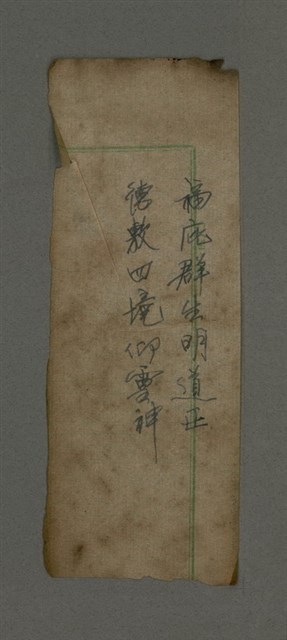 福庇群生明道正
德敷四境仰靈神